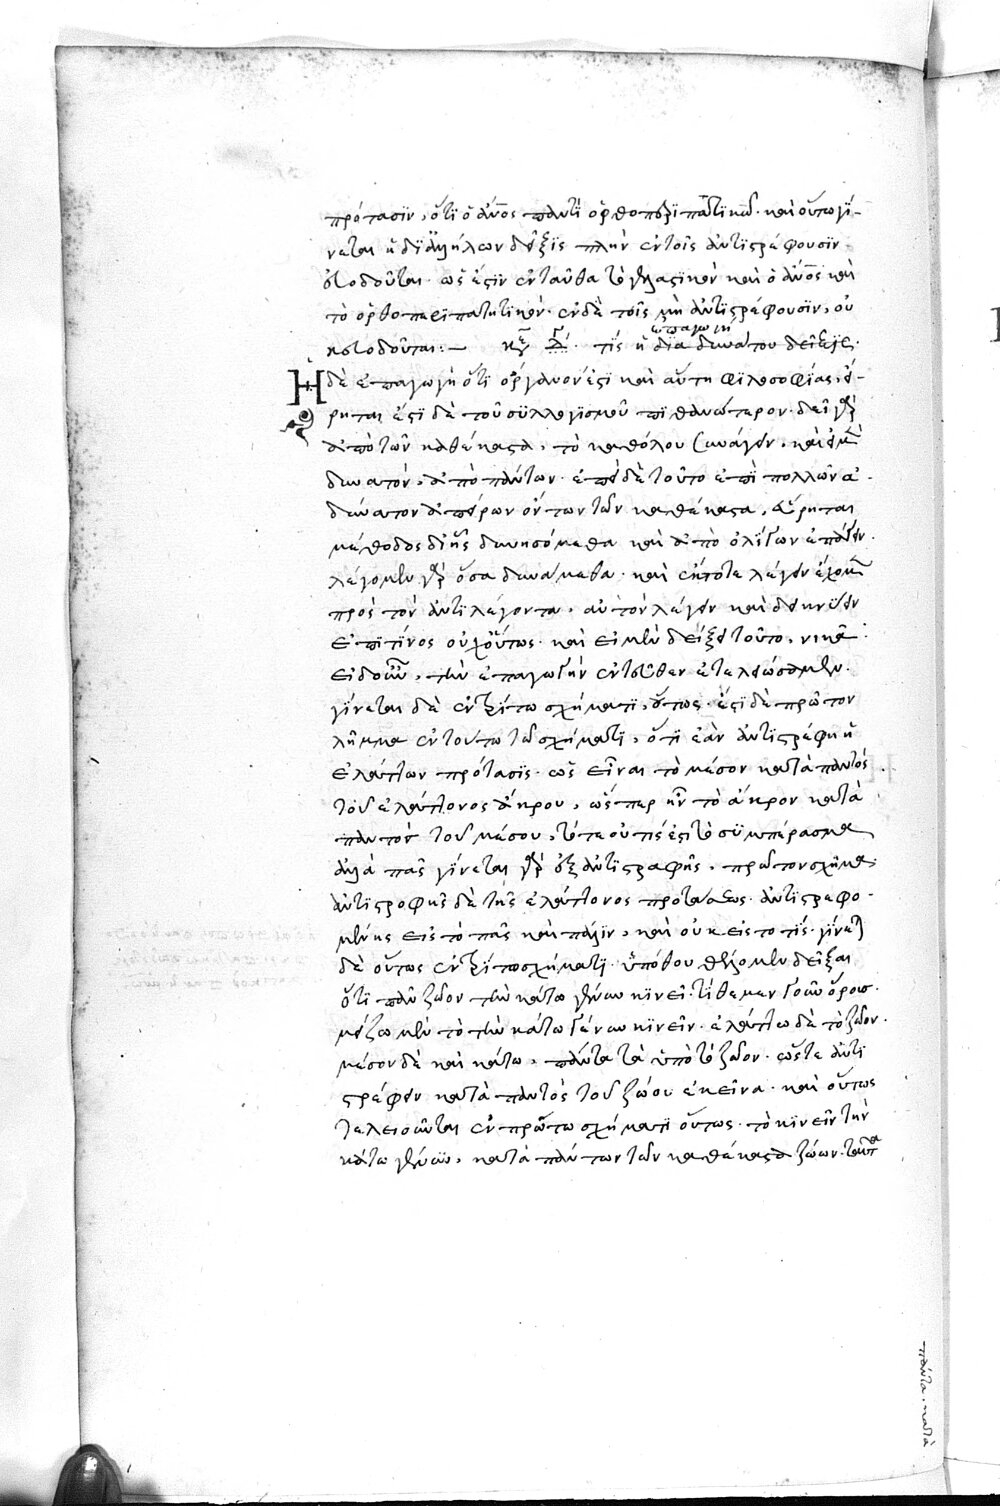 πρότασιν, ὅτι ὁ ἄνος παντὶ ὀρθοπεριπατητικῶ· καὶ οὕτω γί-
νεται ἡ δι' ἀλλήλων δεῖξις πλὴν ἐν τοῖς ἀντιστρέφουσιν
ἐκδοῦται· ὡς ἐστιν ἐνταῦθα τὸ γελαστικὸν καὶ ὁ ἄνος καὶ
τὸ ὀρθοπεριπατητικόν· ἐν δὲ τοῖς μὴ ἀντιστρέφουσιν, οὐ
κ τίς ἡ διὰ δυνάτου δεῖξις·
ἐπαγωγή
Ἡ δὲ ἐπαγωγὴ ὅτι ὄργανον ἐστὶ καὶ αὕτη φιλοσοφίας, εἴ-
ρηται ἐστὶ δὲ τοῦ συλλογισμοῦ πιθανώτερον· δεῖ γὰρ
ἀπὸ τῶν καθέκαστα, τὸ καθόλου συνάγειν, καὶ εἰ μὲν
δυνατὸν, ἀπὸ πάντων· ἐπεὶ δὲ τοῦτο ἐπὶ πολλῶν ἀ-
δύνατον ἀπείρων ὄντων τῶν καθέκαστα, εὕρηται
μέθοδος δι' ἧς δυνησόμεθα καὶ ἀπὸ ὀλίγων ἐπάγειν·
λέγομεν γὰρ ὅσα δυνάμεθα· καὶ λέγειν ἔχομεν
πρὸς τὸν ἀντιλέγοντα, αὐτὸν λέγειν καὶ δεικνύειν
ἐπὶ τίνος οὐχ οὕτως· καὶ εἰ μὲν δείξει τοῦτο, νικᾶ·
εἰ δ' οὖν, τὴν ἐπαγωγὴν ἐντεῦθεν ἐτελειώσαμεν·
γίνεται δὲ ἐν τρίτω σχήματι, οὕτως· ἔστι δὲ πρῶτον
λῆμμα ἐν τούτω τῶ σχήματι, ὅτι ἐὰν ἀντιστρέφη ἡ
ἐλάττων πρότασις· ὡς εἶναι τὸ μέσον κατὰ παντὸς
τοῦ ἐλάττονος ἄκρου, ὥσπερ ἦν τὸ ἄκρον κατὰ
παντὸς τοῦ μέσου, τότε οὐ τίς ἐστι τὸ συμπέρασμα
ἀλλὰ πᾶς γίνεται γὰρ ἐξ ἀντιστροφῆς, πρῶτον σχῆμα·
ἀντιστροφῆς δὲ τῆς ἐλάττονος προτάσεως· ἀντιστρεφο-
μένης εἰς τὸ πᾶς καὶ πάλιν, καὶ οὐκ εἰς τὸ τίς· γίνεται
δὲ οὕτως ἐν τρίτω σχήματι· ὑπόθου θέλομεν δεῖξαι
ὅτι πᾶν ζῶον τὴν κάτω γένυν κινεῖ· τίθεμεν γοῦν ὅρους·
μείζω μὲν τὸ τὴν κάτω γένυν κινεῖν· ἐλάττω δὲ τὸ ζῶον·
μέσον δὲ καὶ κάτω, πάντα τὰ ὑπὸ τὸ ζῶον· ὥστε ἀντι
στρέφειν κατὰ παντὸς τοῦ ζώου ἐκεῖνα· καὶ οὕτως
τελειοῦται ἐν πρώτω σχήματι οὕτως· τὸ κινεῖν τὴν
κάτω γένυν, κατὰ πάντων τῶν καθέκαστα ζώων· ταῦτα
πάντα, κατὰ